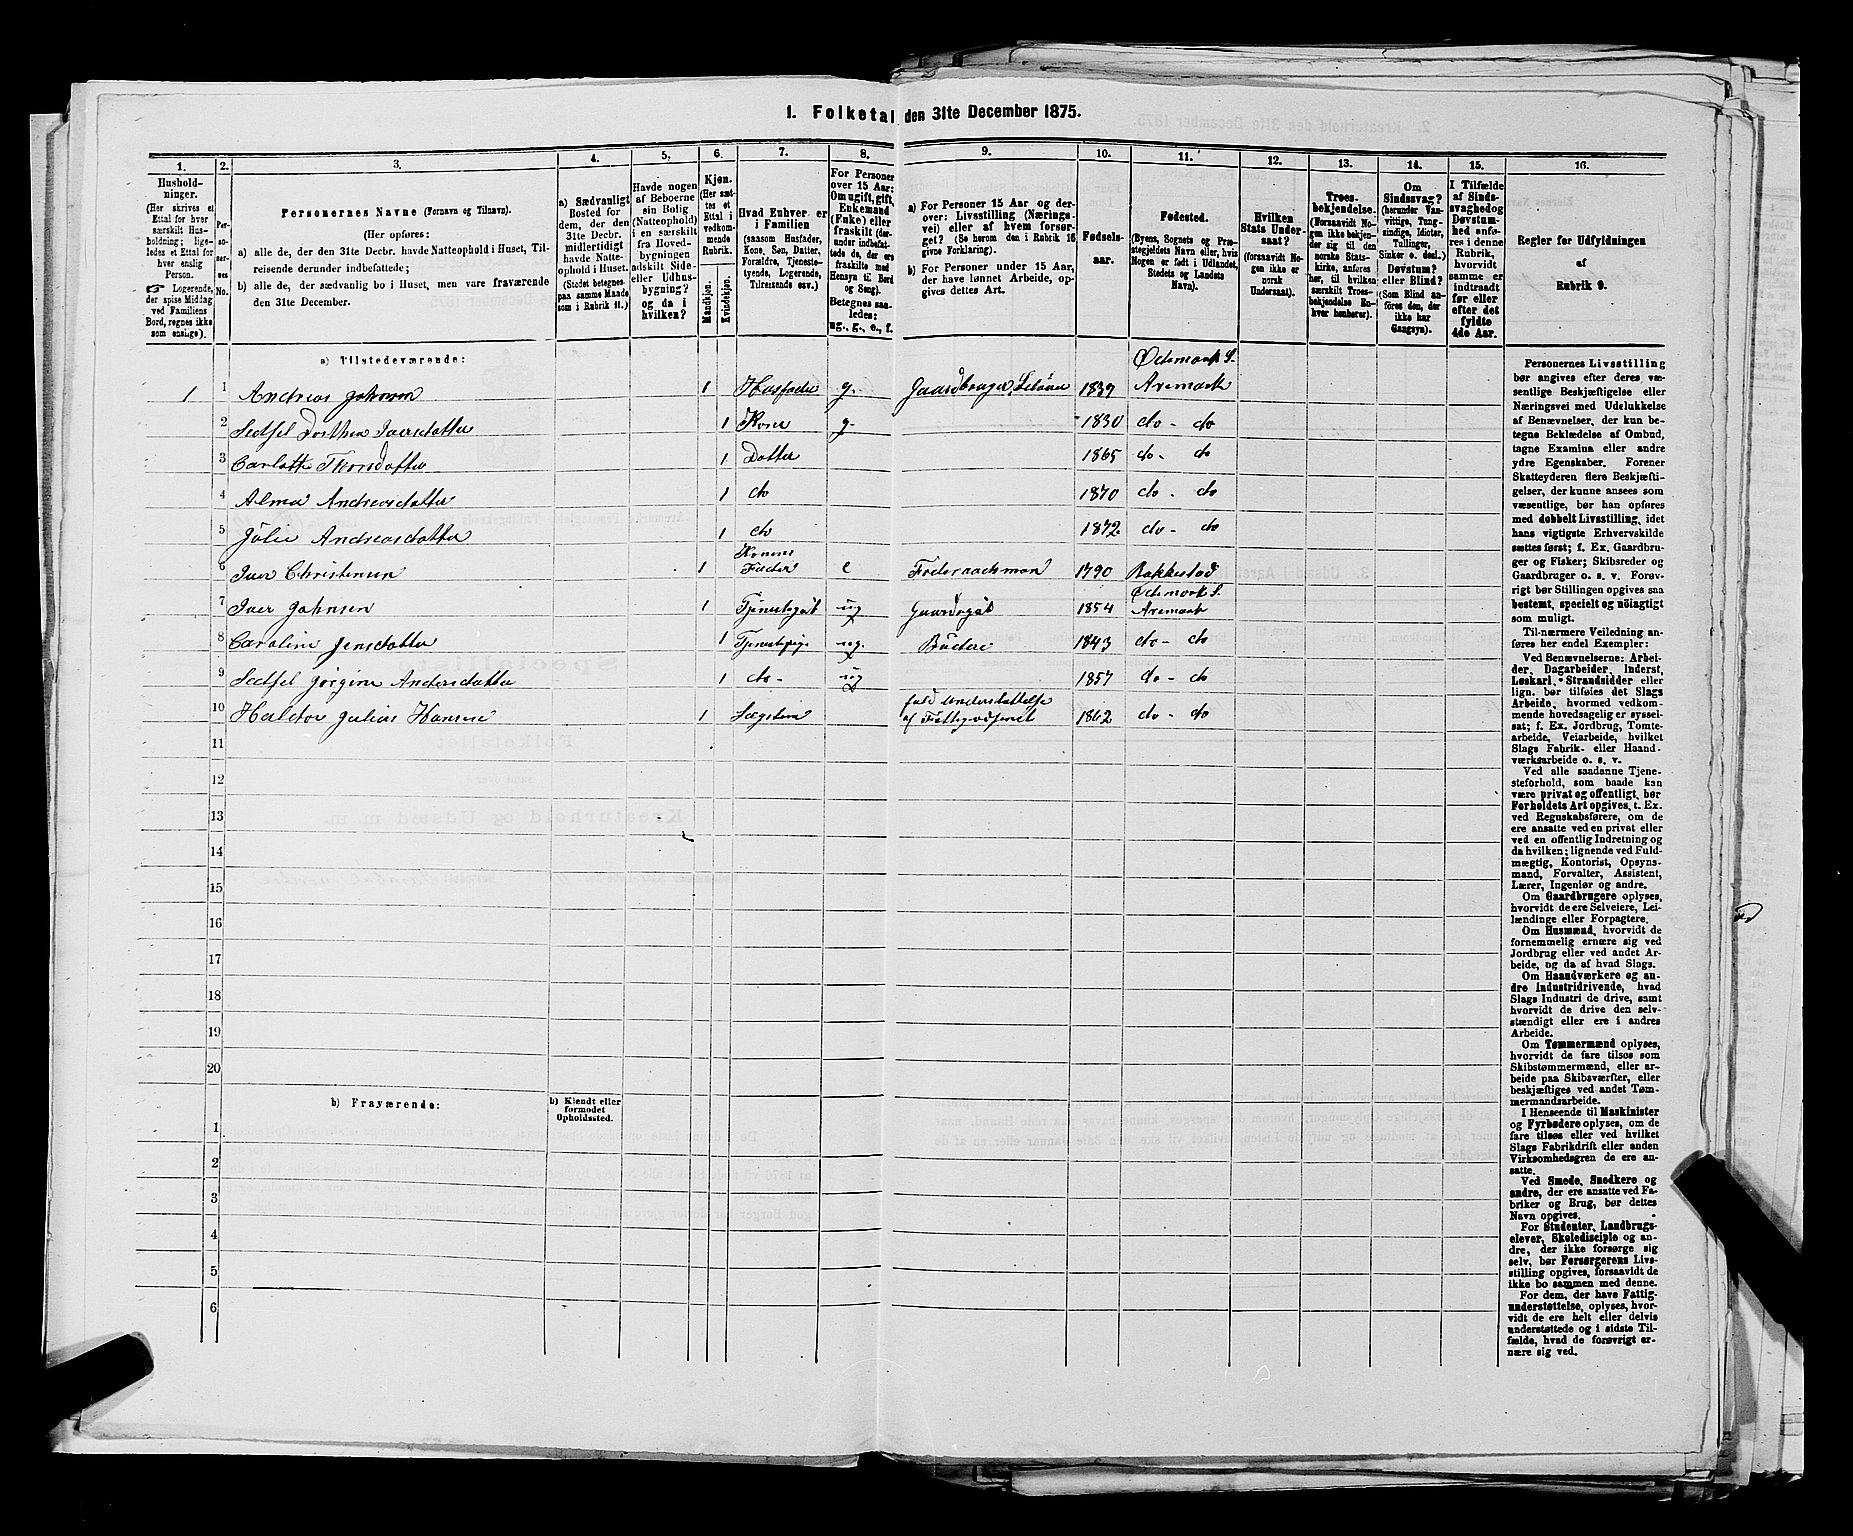 1. Folketal den 31te December 1875.
1.
2.
3.
4.
5.
6.
7.
8.
9.
10.
11.
12.
13.
14.
15.
16.
Hushold-
ninger.
(Her skrives et
Ettal for hver
særskilt Hus-
holdning; lige-
ledes et Ettal for
hver enslig
Person.
☞ Logerende,
der spise Middag
ved Familiens
Bord, regnes ikke
som enslige).
Per-
so-
ner-
nes
No.
Personernes Navne (Fornavn og Tilnavn).
(Her opføres:
a) alle de, der den 31te Decbr. havde Natteophold i Huset, Til-
reisende derunder indbefattede;
b) alle de, der sædvanlig bo i Huset, men vare fraværende
den 31te December.
a) Sædvanligt
Bosted for
dem, der den
31te Decbr.
midlertidigt
havde Natte-
ophold i Huset.
(Stedet betegnes
paa samme Maade
som i Rubrik 11.)
Havde nogen
af Beboerne
sin Bolig
(Natteophold)
i en særskilt
fra Hoved-
bygningen
adskilt Side-
eller Udhus-
bygning?
og da i
hvilken?
Kjøn.
(Her sæt-
tes et
Ettal i
vedkom-
mende
Rubrik.
Mandkjøn.
Kvindekjøn.
Hvad Enhver er
i Familien
(saasom Husfader,
Kone, Søn, Datter,
Forældre, Tjeneste-
tyende, Logerende,
Tilreisende osv.)
For Personer
over 15 Aar:
Om ugift, gift,
Enkemand
(Enke) eller
fraskilt (der-
under indbefat-
tede de, der ere
fraskilte med
Hensyn til Bord
og Seng).
Betegnes saa-
ledes:
ug., g., e., f.
a) For Personer 15 Aar og der-
over: Livsstilling (Nærings-
vei) eller af hvem forsør-
get? (Se herom den i Rubrik 16
givne Forklaring).
b) For Personer under 15 Aar,
der have lønnet Arbeide, op-
gives dettes Art.
Fødsels-
aar.
Fødested.
(Byens, Sognets og Præ-
stegjeldets Navn eller, hvis
Nogen er født i Udlandet,
Stedets og Landets
Navn).
Hvilken
Stats Under-
saat?
(forsaavidt No-
gen ikke er
norsk
Undersaat).
Troes-
bekjendelse.
(Forsaavidt No-
gen ikke bekjen-
der sig til den
norske Stats-
kirke, anføres
her, til hvilken
særskilt Troes-
bekjendelse En-
hver henhører).
Om
Sindssvag?
(herunder Van-
vittige, Tung-
sindige, Idioter,
Tullinger,
Sinker o. desl.)
Døvstum?
eller Blind?
(Som Blind an-
føres den, der
ikke har
Gangsyn).
I Tilfælde
af Sinds-
svaghed og
Døvstum-
hed anfø-
res i denne
Rubrik,
hvorvidt
samme er
indtraadt
før eller
efter det
fyldte
4de Aar.
Regler for Udfyldningen
af
Rubrik 9.
a) Tilstedeværende:
Ødemark S.
1 1 Andreas Johnsen 1 Husfader g. Gaardbruger Selveier 1839 Aremark
2 Sedsel Dorthea Iversdatter 1 Kone g. 1830 do - do
3 Carlotte Thorsdatter 1 Datter 1865 do - do
4 Alma Andreasdatter 1 do 1870 do - do
5 Julie Andreasdatter 1 do 1872 do - do
Konens
6 Iver Christensen 1 Fader e Føderaadsman 1790 Rakkestad
Ødemark S.
7 Iver Johnsen 1 Tjenestegut ug Gaardsgut 1854 Aremark
8 Caroline Jensdatter 1 Tjenestepige ug. Budeie 1843 do - do
9 Sedsel Jørgine Andersdatter 1 do - ug 1857 do - do
fuld Understøttelse
10 Haldor Julius Hansen 1 Lægdem af Fattigvæsenet 1862 do - do
11
12
13
14
15
16
17
18
19
20
b) Fraværende:
b) Kjendt eller
formodet
Opholdssted.
1
2
3
4
5
6
Personernes Livsstilling
bør angives efter deres væ-
sentlige Beskjæftigelse eller
Næringsvei med Udelukkelse
af Benævnelser, der kun be-
tegne Beklædelse af Ombud,
tagne Examina eller andre
ydre Egenskaber. Forener
Skatteyderen flere Beskjæfti-
gelser, der kunne ansees som
væsentlige, bør han opføres
med dobbelt Livsstilling, idet
hans vigtigste Erhvervskilde
sættes først; f. Ex. Gaardbru-
ger og Fisker; Skibsreder og
Gaardbruger o. s. v. Forøv-
rigt bør Stillingen opgives saa
bestemt, specielt og nøiagtigt
som muligt.
Til nærmere Veiledning an-
føres her endel Exempler:
Ved Benævnelserne: Arbei-
der, Dagarbeider, Inderst,
Løskarl, Strandsidder eller
lign. bør tilføies det Slags
Arbeide, hvormed vedkom-
mende hovedsagelig er syssel-
sat; f. Ex. Jordbrug, Tomte-
arbeide, Veiarbeide, hvilket
Slags Fabrik- eller Haand-
værksarbeide o. s. v.
Ved alle saadanne Tjene-
steforhold, som baade kan
være privat og offentligt, bør
Forholdets Art opgives, t. Ex.
ved Regnskabsførere, om de
ere ansatte ved en privat eller
ved en offentlig Indretning og
da hvilken; lignende ved Fuld-
mægtig, Kontorist, Opsyns-
mand, Forvalter, Assistent,
Lærer, Ingeniør og andre.
Om Gaardbrugere oplyses,
hvorvidt de ere Selveiere, Lei-
lændinge eller Forpagtere.
Om Husmænd, hvorvidt de
fornemmelig ernære sig ved
Jordbrug eller ved andet Ar-
beide, og da af hvad Slags.
Om Haandværkere og an-
dre Industridrivende, hvad
Slags Industri de drive, samt
hvorvidt de drive den selv-
stændigt eller ere i andres
Arbeide.
Om Tømmermænd oplyses,
hvorvidt de fare tilsøs som
Skibstømmermænd, eller ar-
beide paa Skibsværfter, eller
beskjæftiges ved andet Tøm-
mermandsarbeide.
I Henseende til Maskinister
og Fyrbødere oplyses, om de
fare tilsøs eller ved hvilket
Slags Fabrikdrift eller anden
Virksomhedsgren de ere an-
satte.
Ved Smede, Snedkere og
andre, der ere ansatte ved Fa-
briker og Brug, bør dettes
Navn opgives.
For Studenter, Landbrugs-
elever, Skoledisciple og an-
dre, der ikke forsørge sig
selv, bør Forsørgerens Livs-
stilling opgives, forsaavidt de
ikke bo sammen med denne.
For dem, der have Fattig-
understøttelse, oplyses, hvor-
vidt de ere helt eller delvis
understøttede og i sidste Til-
fælde, hvad de forøvrigt er-
nære sig ved.